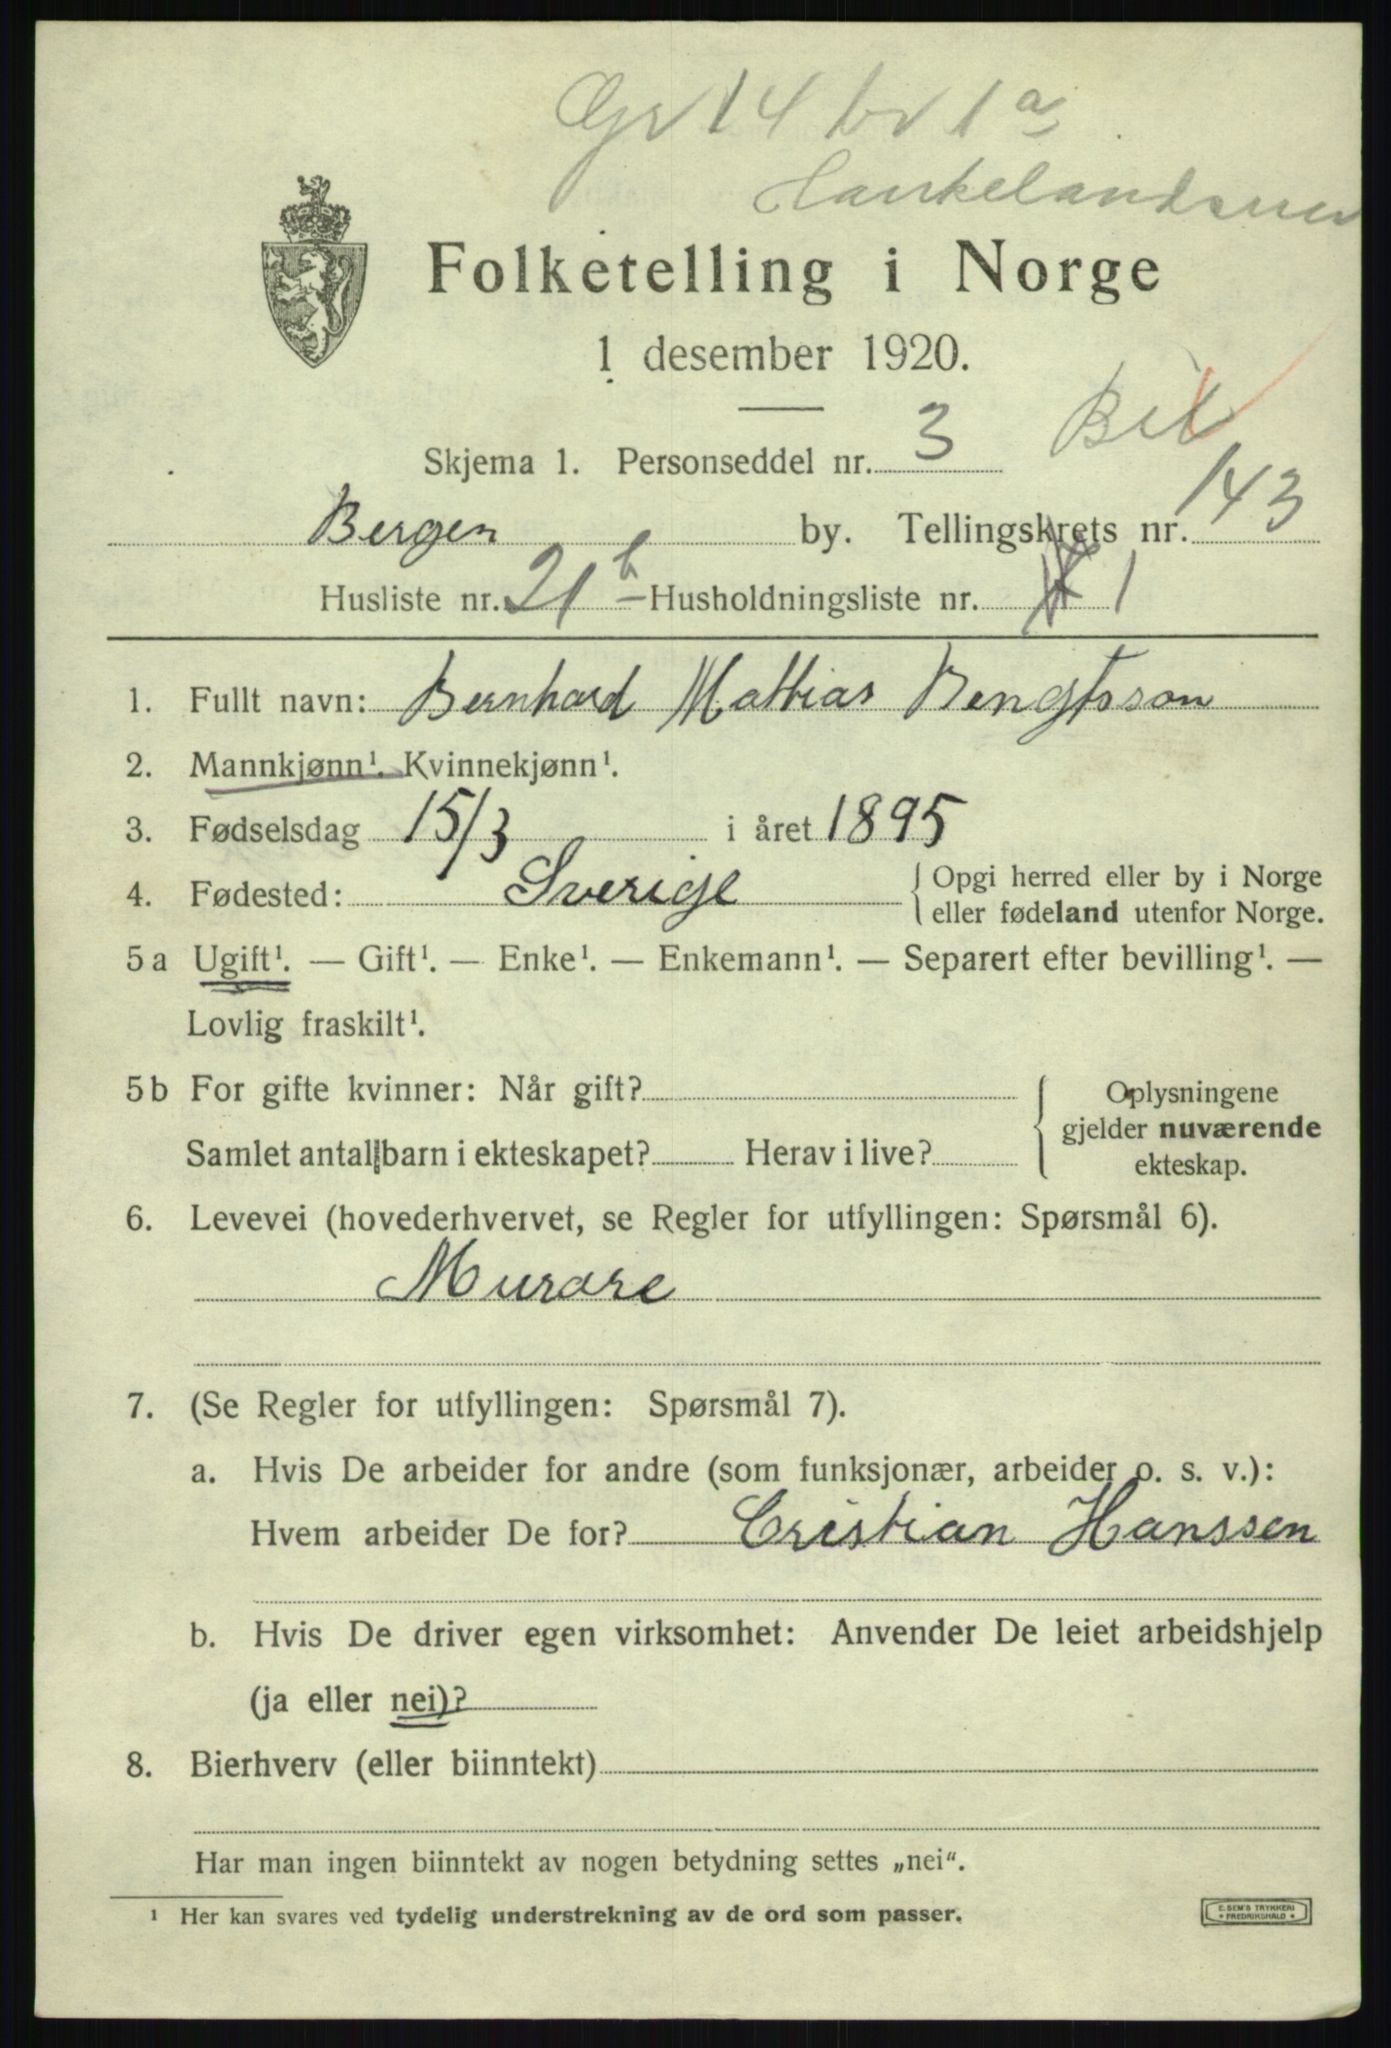 Gr 14 br 1a
Haukelandsvei
Folketelling i Norge
1 desember 1920.
Skjema 1. Personseddel nr. 3
Bergen by. Tellingskrets nr. 143
Husliste nr. 21b Husholdningsliste nr. 1
1. Fullt navn: Bernhard Mattias Bengtsson
2. Mannkjønn¹. Kvinnekjønn¹.
3. Fødselsdag 15/3 i året 1895
4. Fødested: Sverige { Opgi herred eller by i Norge
eller fødeland utenfor Norge.
5 a Ugift¹. — Gift¹. — Enke¹. — Enkemann¹. — Separert efter bevilling¹. —
Lovlig fraskilt¹.
5 b For gifte kvinner: Når gift? { Oplysningene
gjelder nuværende
Samlet antal barn i ekteskapet? Herav i live? ekteskap.
6. Levevei (hovederhvervet, se Regler for utfyllingen: Spørsmål 6).
Murare
7. (Se Regler for utfyllingen: Spørsmål 7).
a. Hvis De arbeider for andre (som funksjonær, arbeider o. s. v.):
Hvem arbeider De for? Cristian Hanssen
b. Hvis De driver egen virksomhet: Anvender De leiet arbeidshjelp
(ja eller nei)?
8. Bierhverv (eller biinntekt)
Har man ingen biinntekt av nogen betydning settes „nei“.
¹ Her kan svares ved tydelig understrekning av de ord som passer.
E. SEM'S TRYKKERI
FREDRIKSHALD